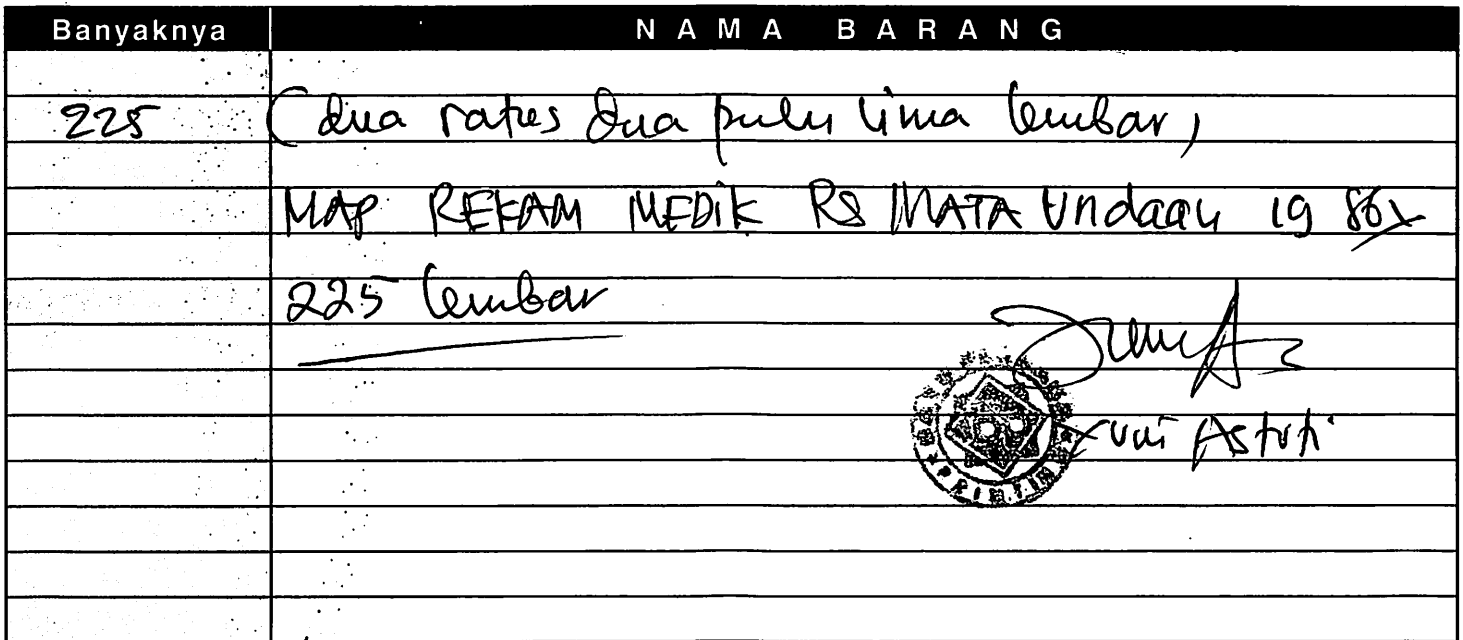 Banyaknya NAMA BARANG
225 (dua ratus dua pulu lima lembar)
MAP REKAM MEDIK RS MATA Undaan 19
225 lembar
Astuti
PRINTING